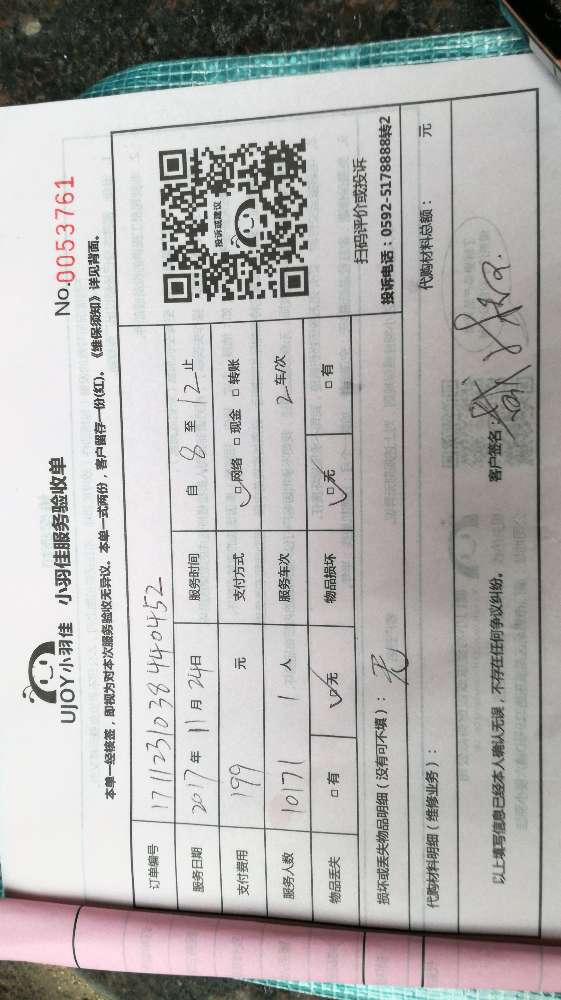 UJOY小羽佳 小羽佳服务验收单
No.0053761
本单一经核签，即视为对本次服务验收无异议。本单一式两份，客户留存一份(红)。《维保须知》详见背面。
订单编号 1711231038440452
服务日期 2017年11月24日 服务时间 自8至12止
支付费用 199元 支付方式 ☑网络 □现金 □转账
服务人数 10171 1人 服务车次 2车/次
物品丢失 □有 ☑无 物品损坏 ☑无 □有
投诉或建议
扫码评价或投诉
投诉电话：0592-5178888转2
损坏或丢失物品明细（没有可不填）：无
代购材料明细（维修业务）： 代购材料总额： 元
以上填写信息已经本人确认无误，不存在任何争议纠纷。 客户签名：